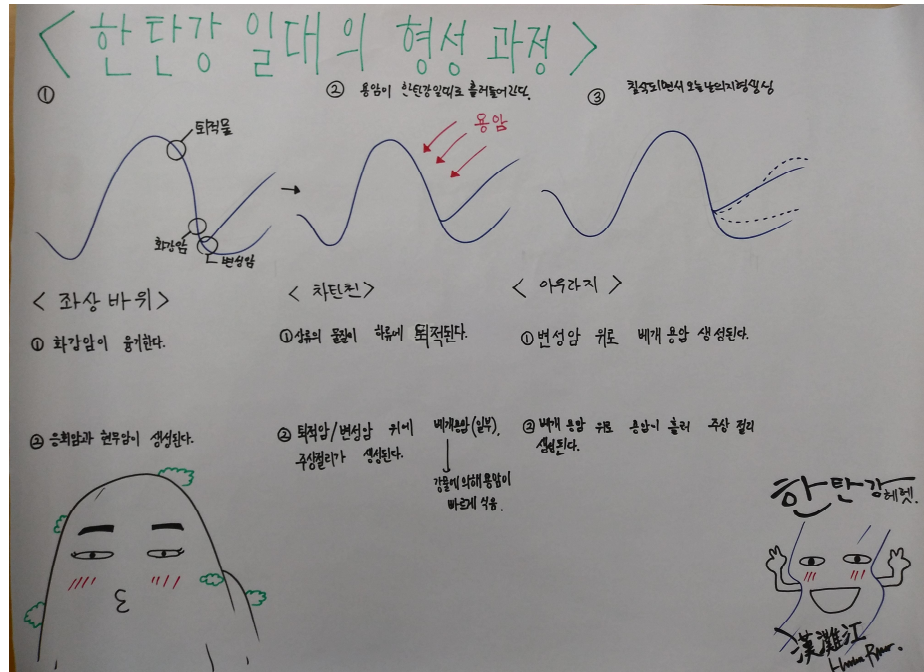 < 한탄강 일대의 형성 과정 >
①
② 용암이 한탄강일대로 흘러들어간다.
③ 침식되면서 오늘날의지형생성
퇴적물
화강암
변성암
용암
< 좌상 바위 >
① 화강암이 융기한다.
② 응회암과 현무암이 생성된다.
< 차탄천 >
① 상류의 물질이 하류에 퇴적된다.
② 퇴적암/변성암 위에 베개용암(일부),
주상절리가 생성된다.
강물에 의해 용암이
빠르게 식음.
< 아우라지 >
① 변성암 위로 베개 용암 생성된다.
② 베개 용암 위로 용암이 흘러 주상 절리
생성된다.
한탄강
漢灘江